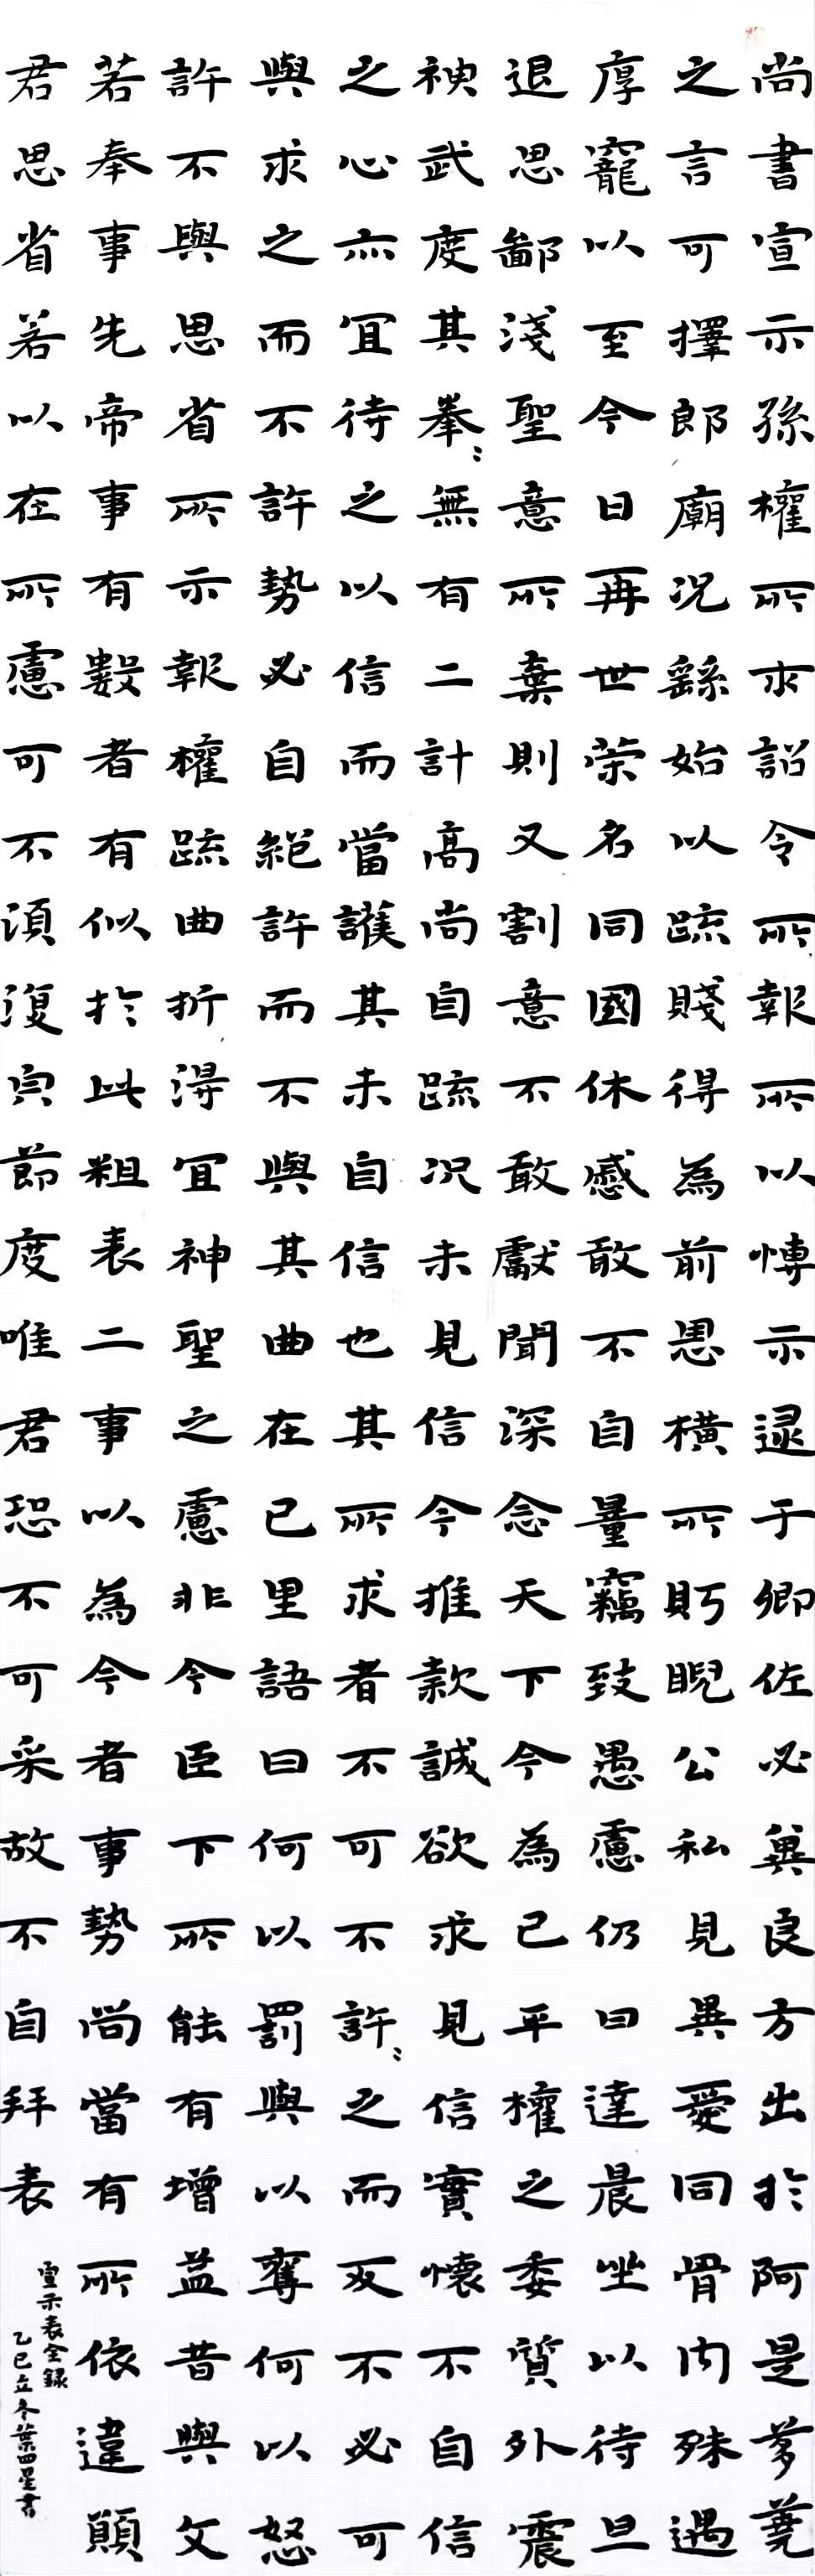 尚書宣示孫權所求詔令所報所以博示逮于卿佐必冀良方出於阿是芻蕘
之言可擇郎廟況繇始以疏賤得為前恩橫所眄睨公私見異愛同骨肉殊遇
厚寵以至今日再世榮名同國休慼敢不自量竊致愚慮仍曰達晨坐以待旦
退思鄙淺聖意所棄則又割意不敢獻聞深念天下今為已平權之委質外震
神武度其拳〻無有二計高尚自疏況未見信今推款誠欲求見信實懷不自信
之心亦宜待之以信而當護其未自信也其所求者不可不許〻之而反不必可
與求之而不許勢必自絕許而不與其曲在己里語曰何以罰與以奪何以怒
許不與思省所示報權疏曲折得宜神聖之慮非今臣下所能有增益昔與文
若奉事先帝事有數者有似於此粗表二事以為今者事勢尚當有所依違願
君思省若以在所慮可不須復節度唯君恐不可采故不自拜表
宣示表全錄
乙巳立冬葉四星書